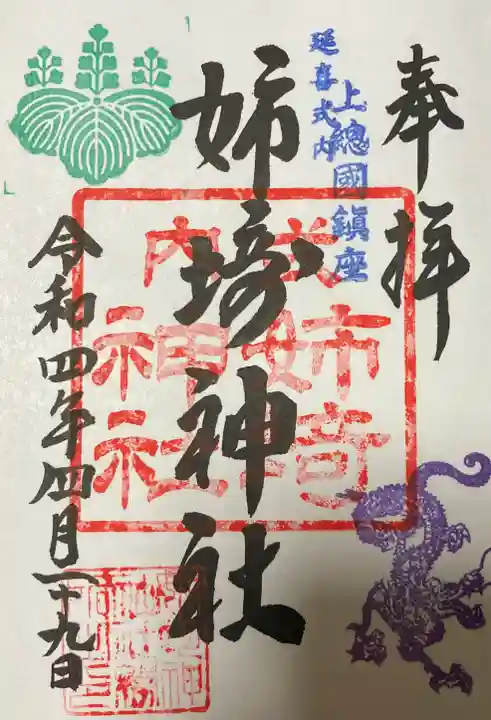 奉拝
上總國鎮座
延喜式内
姉埼神社
式内姉埼神社
令和四年四月二十九日